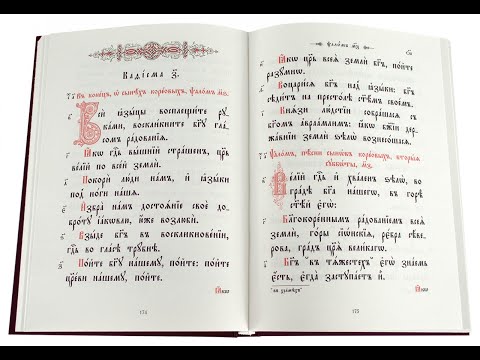 Каѳісма з҃.
Въ конецъ, ѡ сынѣхъ кореовыхъ, ѱаломъ м҃ѕ
Вси ꙗзыцы восплещите рꙋ-
ками, воскликните бг҃ꙋ гла-
сомъ радованїѧ.
Ꙗкѡ гд҇ь вышнїй страшенъ, цр҃ь
велїй по всей земли.
Покори люди намъ, и ꙗзыки
под ноги нашѧ.
Избра намъ достоѧнїе свое, до-
бротꙋ їаковлю, юже возлюби.
Взыде бг҃ъ въ воскликновенїи,
гд҇ь во гласѣ трꙋбнѣ.
Пойте бг҃ꙋ нашемꙋ, пойте: пойте
цр҃еви нашемꙋ, пойте.
Ꙗкѡ
174
ѱаломъ м҃з
Ꙗкѡ цр҃ь всеѧ земли бг҃ъ, пойте
разꙋмнѡ.
Воцарисѧ бг҃ъ над ꙗзыки: бг҃ъ
сѣдитъ на престолѣ ст҃ѣмъ своемъ.
Кнѧзи людстїи собрашасѧ съ
бг҃омъ авраамлимъ: ꙗкѡ бж҃їи дер-
жавнїи земли ѕѣлѡ вознесошасѧ.
Ѱаломъ, пѣсни сынѡвъ кореовыхъ, вторыѧ
сꙋбботы, м҃з
Велїй гд҇ь и хваленъ ѕѣлѡ, во
градѣ бг҃а нашегѡ, въ горѣ
ст҃ѣй єгѡ.
Благокореннымъ радованїемъ всеѧ
земли, горы сїѡнскїѧ, ребра сѣве-
рова, градъ цр҃ѧ великагѡ.
Бг҃ъ въ тѧжестехъ єгѡ знаемь
єсть, єгда застꙋпаетъ й.
Ꙗкѡ
175